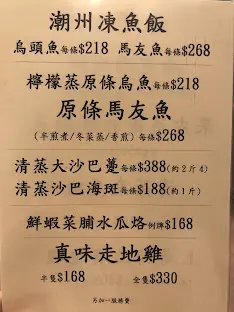 潮州凍魚飯
烏頭魚每條$218 馬友魚每條$268
檸檬蒸原條烏魚每條$218
原條馬友魚
(半煎煮/冬菜蒸/香煎)每條$268
清蒸大沙巴躉每條$388(約2斤4)
清蒸沙巴海斑每條$188(約1斤)
鮮蝦菜脯水瓜烙例牌$168
真味走地雞
半隻$168 全隻$330
另加一服務費